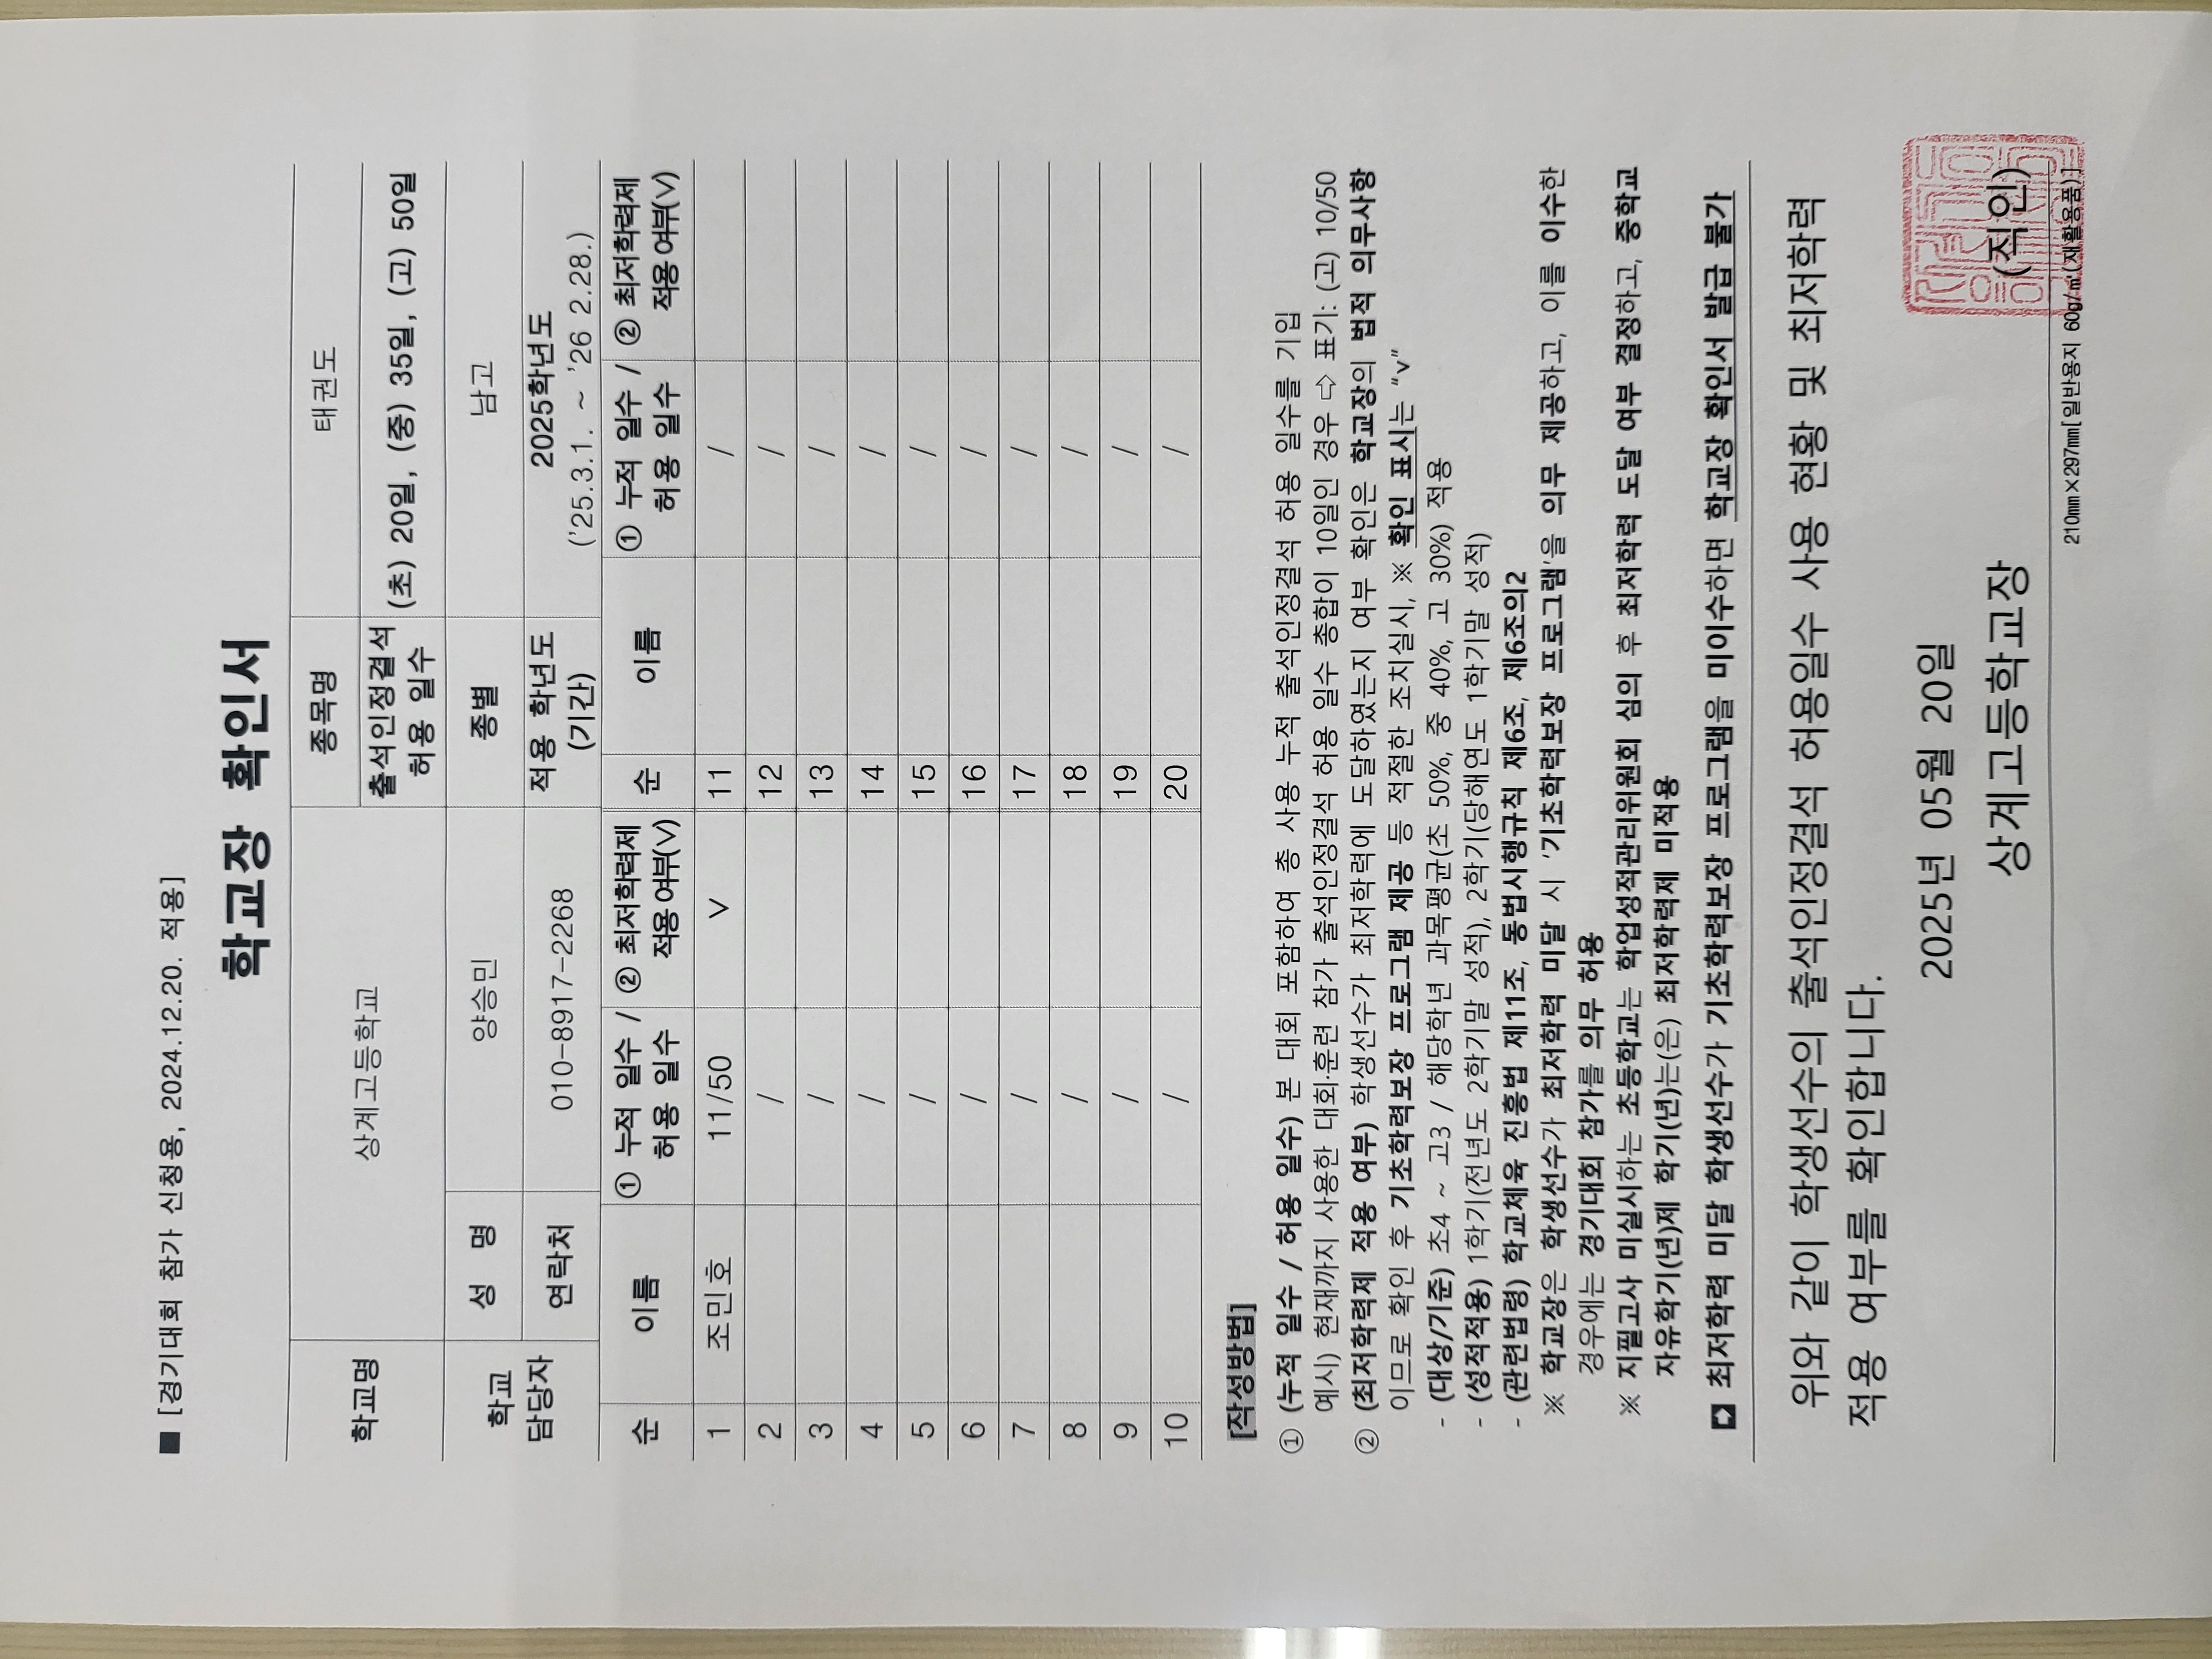 ■ [경기대회 참가 신청용, 2024.12.20. 적용]
학교장 확인서
학교명 상계고등학교 종목명 태권도
출석인정결석 허용 일수 (초) 20일, (중) 35일, (고) 50일
학교 담당자 성 명 양승민 종별 남고
연락처 010-8917-2268 적용 학년도 (기간) 2025학년도 ('25.3.1. ~ '26 2.28.)
순 이름 ① 누적 일수 / 허용 일수 ② 최저학력제 적용 여부(V) 순 이름 ① 누적 일수 / 허용 일수 ② 최저학력제 적용 여부(V)
1 조민호 11/50 V 11 /
2 / 12 /
3 / 13 /
4 / 14 /
5 / 15 /
6 / 16 /
7 / 17 /
8 / 18 /
9 / 19 /
10 / 20 /
[작성방법]
① (누적 일수 / 허용 일수) 본 대회 포함하여 총 사용 누적 출석인정결석 허용 일수를 기입
예시) 현재까지 사용한 대회·훈련 참가 출석인정결석 허용 일수 총합이 10일인 경우 ⇨ 표기: (고) 10/50
② (최저학력제 적용 여부) 학생선수가 최저학력에 도달하였는지 여부 확인은 학교장의 법적 의무사항
이므로 확인 후 기초학력보장 프로그램 제공 등 적절한 조치실시, ※ 확인 표시는 “v”
- (대상/기준) 초4 ~ 고3 / 해당학년 과목평균(초 50%, 중 40%, 고 30%) 적용
- (성적적용) 1학기(전년도 2학기말 성적), 2학기(당해연도 1학기말 성적)
- (관련법령) 학교체육 진흥법 제11조, 동법시행규칙 제6조, 제6조의2
※ 학교장은 학생선수가 최저학력 미달 시 '기초학력보장 프로그램'을 의무 제공하고, 이를 이수한
경우에는 경기대회 참가를 의무 허용
※ 지필고사 미실시하는 초등학교는 학업성적관리위원회 심의 후 최저학력 도달 여부 결정하고, 중학교
자유학기(년)제 학기(년)는(은) 최저학력제 미적용
➡ 최저학력 미달 학생선수가 기초학력보장 프로그램을 미이수하면 학교장 확인서 발급 불가
위와 같이 학생선수의 출석인정결석 허용일수 사용 현황 및 최저학력
적용 여부를 확인합니다.
2025년 05월 20일
상계고등학교장 (직인)
210mm×297mm[일반용지 60g/㎡(재활용품)]